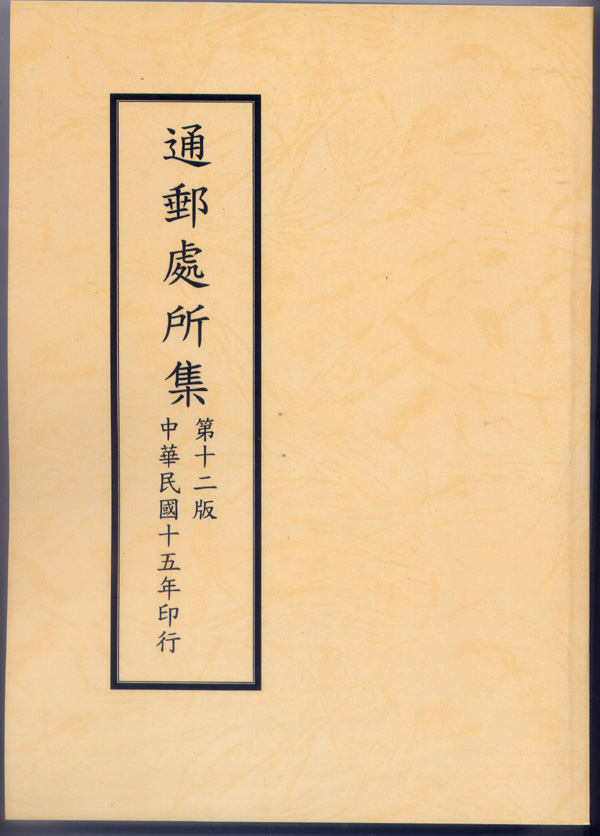 通郵處所集
第十二版
中華民國十五年印行